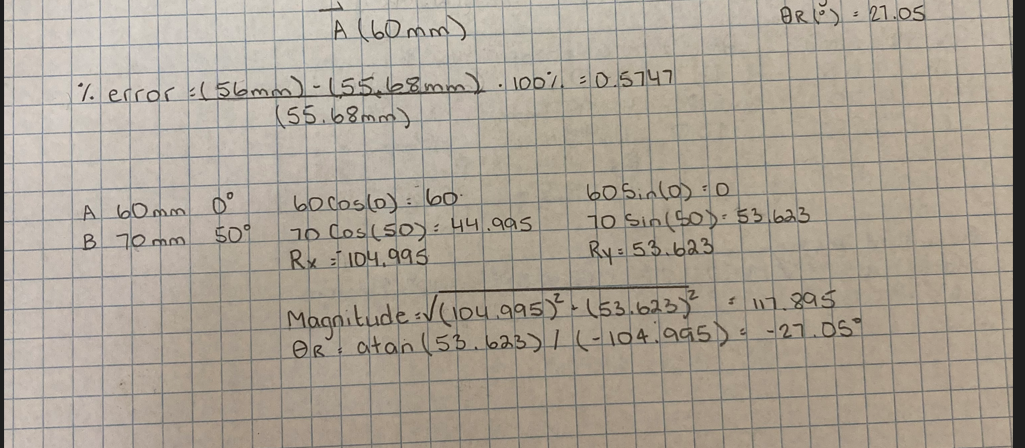 θR(°) = 27.05
A (60mm)
% error = (56mm) - (55.68mm) · 100% = 0.5747
(55.68mm)
A 60mm 0° 60cos(0) = 60. 60Sin(0) = 0
B 70mm 50° 70 Cos(50) = 44.995 70 Sin(50) = 53.623
Rx = 104.995 Ry = 53.623
Magnitude = √(104.995)² - (53.623)² = 117.895
θR = atan(53.623) / (-104.995) = -27.05°